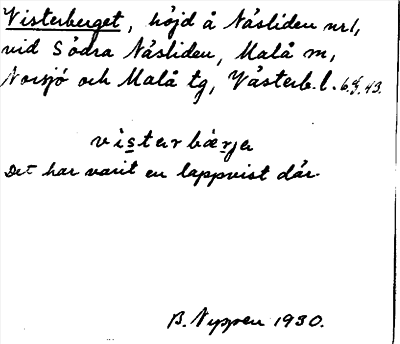 Visterberget, höjd å Näsliden nr 1,
vid Södra Näsliden, Malå sn,
Norsjö och Malå tg, Västerb. l.
visterbærja
Det har varit en lappvist där.
1930.